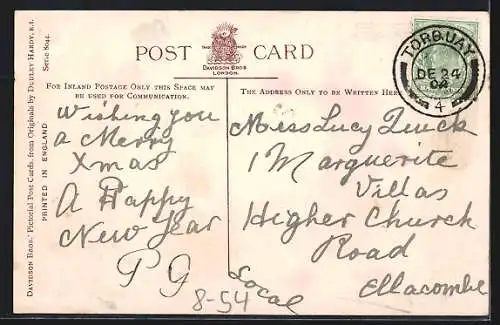 POST CARD
DAVIDSON BROS.
LONDON.
FOR INLAND POSTAGE ONLY THIS SPACE MAY
BE USED FOR COMMUNICATION.
THE ADDRESS ONLY TO BE WRITTEN HERE
TORQUAY
DE 24
04
4
Wishing you
a Merry
Xmas
A Happy
New Year
P G
8-54
Miss Lucy
1 Marguerite
Villas
Higher Church
Road
Ellacombe
Local
DAVIDSON BROS.' Pictorial Post Cards, from Originals by DUDLEY HARDY, R.I.
Serie 8042.
PRINTED IN ENGLAND.